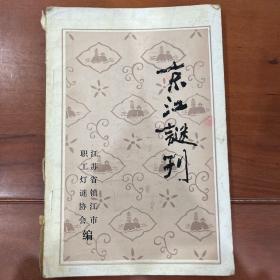 京江謎刊
江苏省镇江市
职工灯谜协会
编